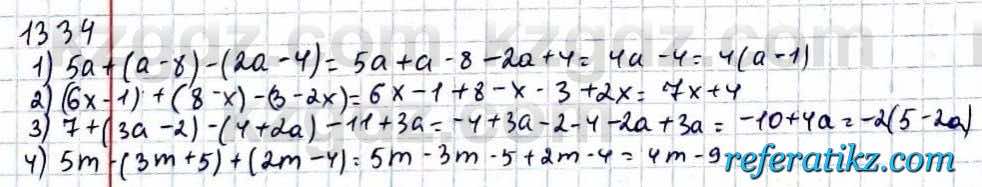 1334
1) 5a+(a-8)-(2a-4)=5a+a-8-2a+4=4a-4=4(a-1)
2) (6x-1)+(8-x)-(3-2x)=6x-1+8-x-3+2x=7x+4
3) 7+(3a-2)-(4+2a)-11+3a=-4+3a-2-4-2a+3a=-10+4a=-2(5-2a)
4) 5m-(3m+5)+(2m-4)=5m-3m-5+2m-4=4m-9
referatikz.com